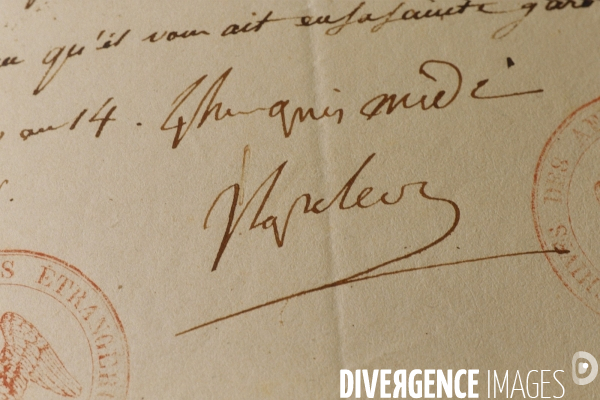 qu'il vous ait en sa sainte gar
an 14. 
midi
Napoleon
S ETRANGER
ES DES A
DIVERGENCE IMAGES